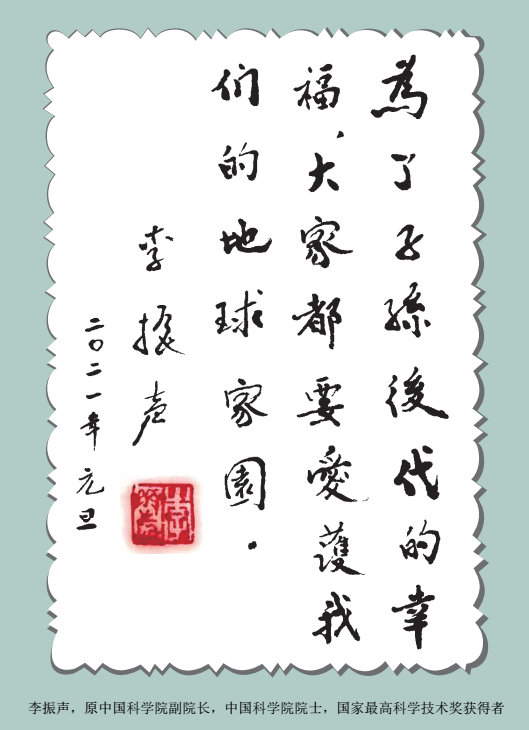 為了子孫後代的幸
福，大家都要愛護我
们的地球家园．
李振声
二〇二一年元旦
李振声，原中国科学院副院长，中国科学院院士，国家最高科学技术奖获得者